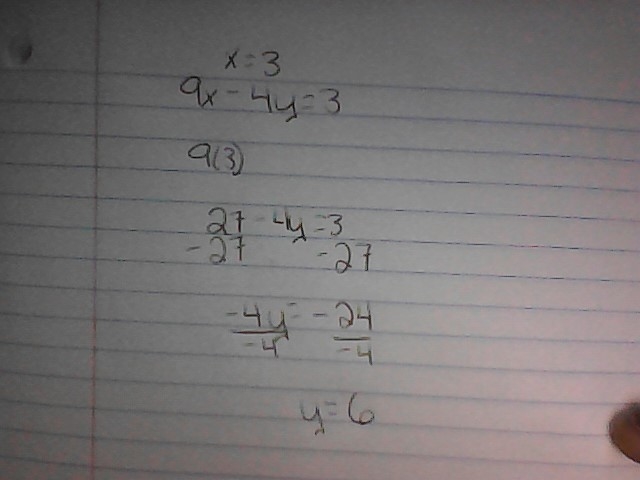 x=3
9x-4y=3
9(3)
27-4y=3
-27 -27
-4y=-24
-4 -4
y=6